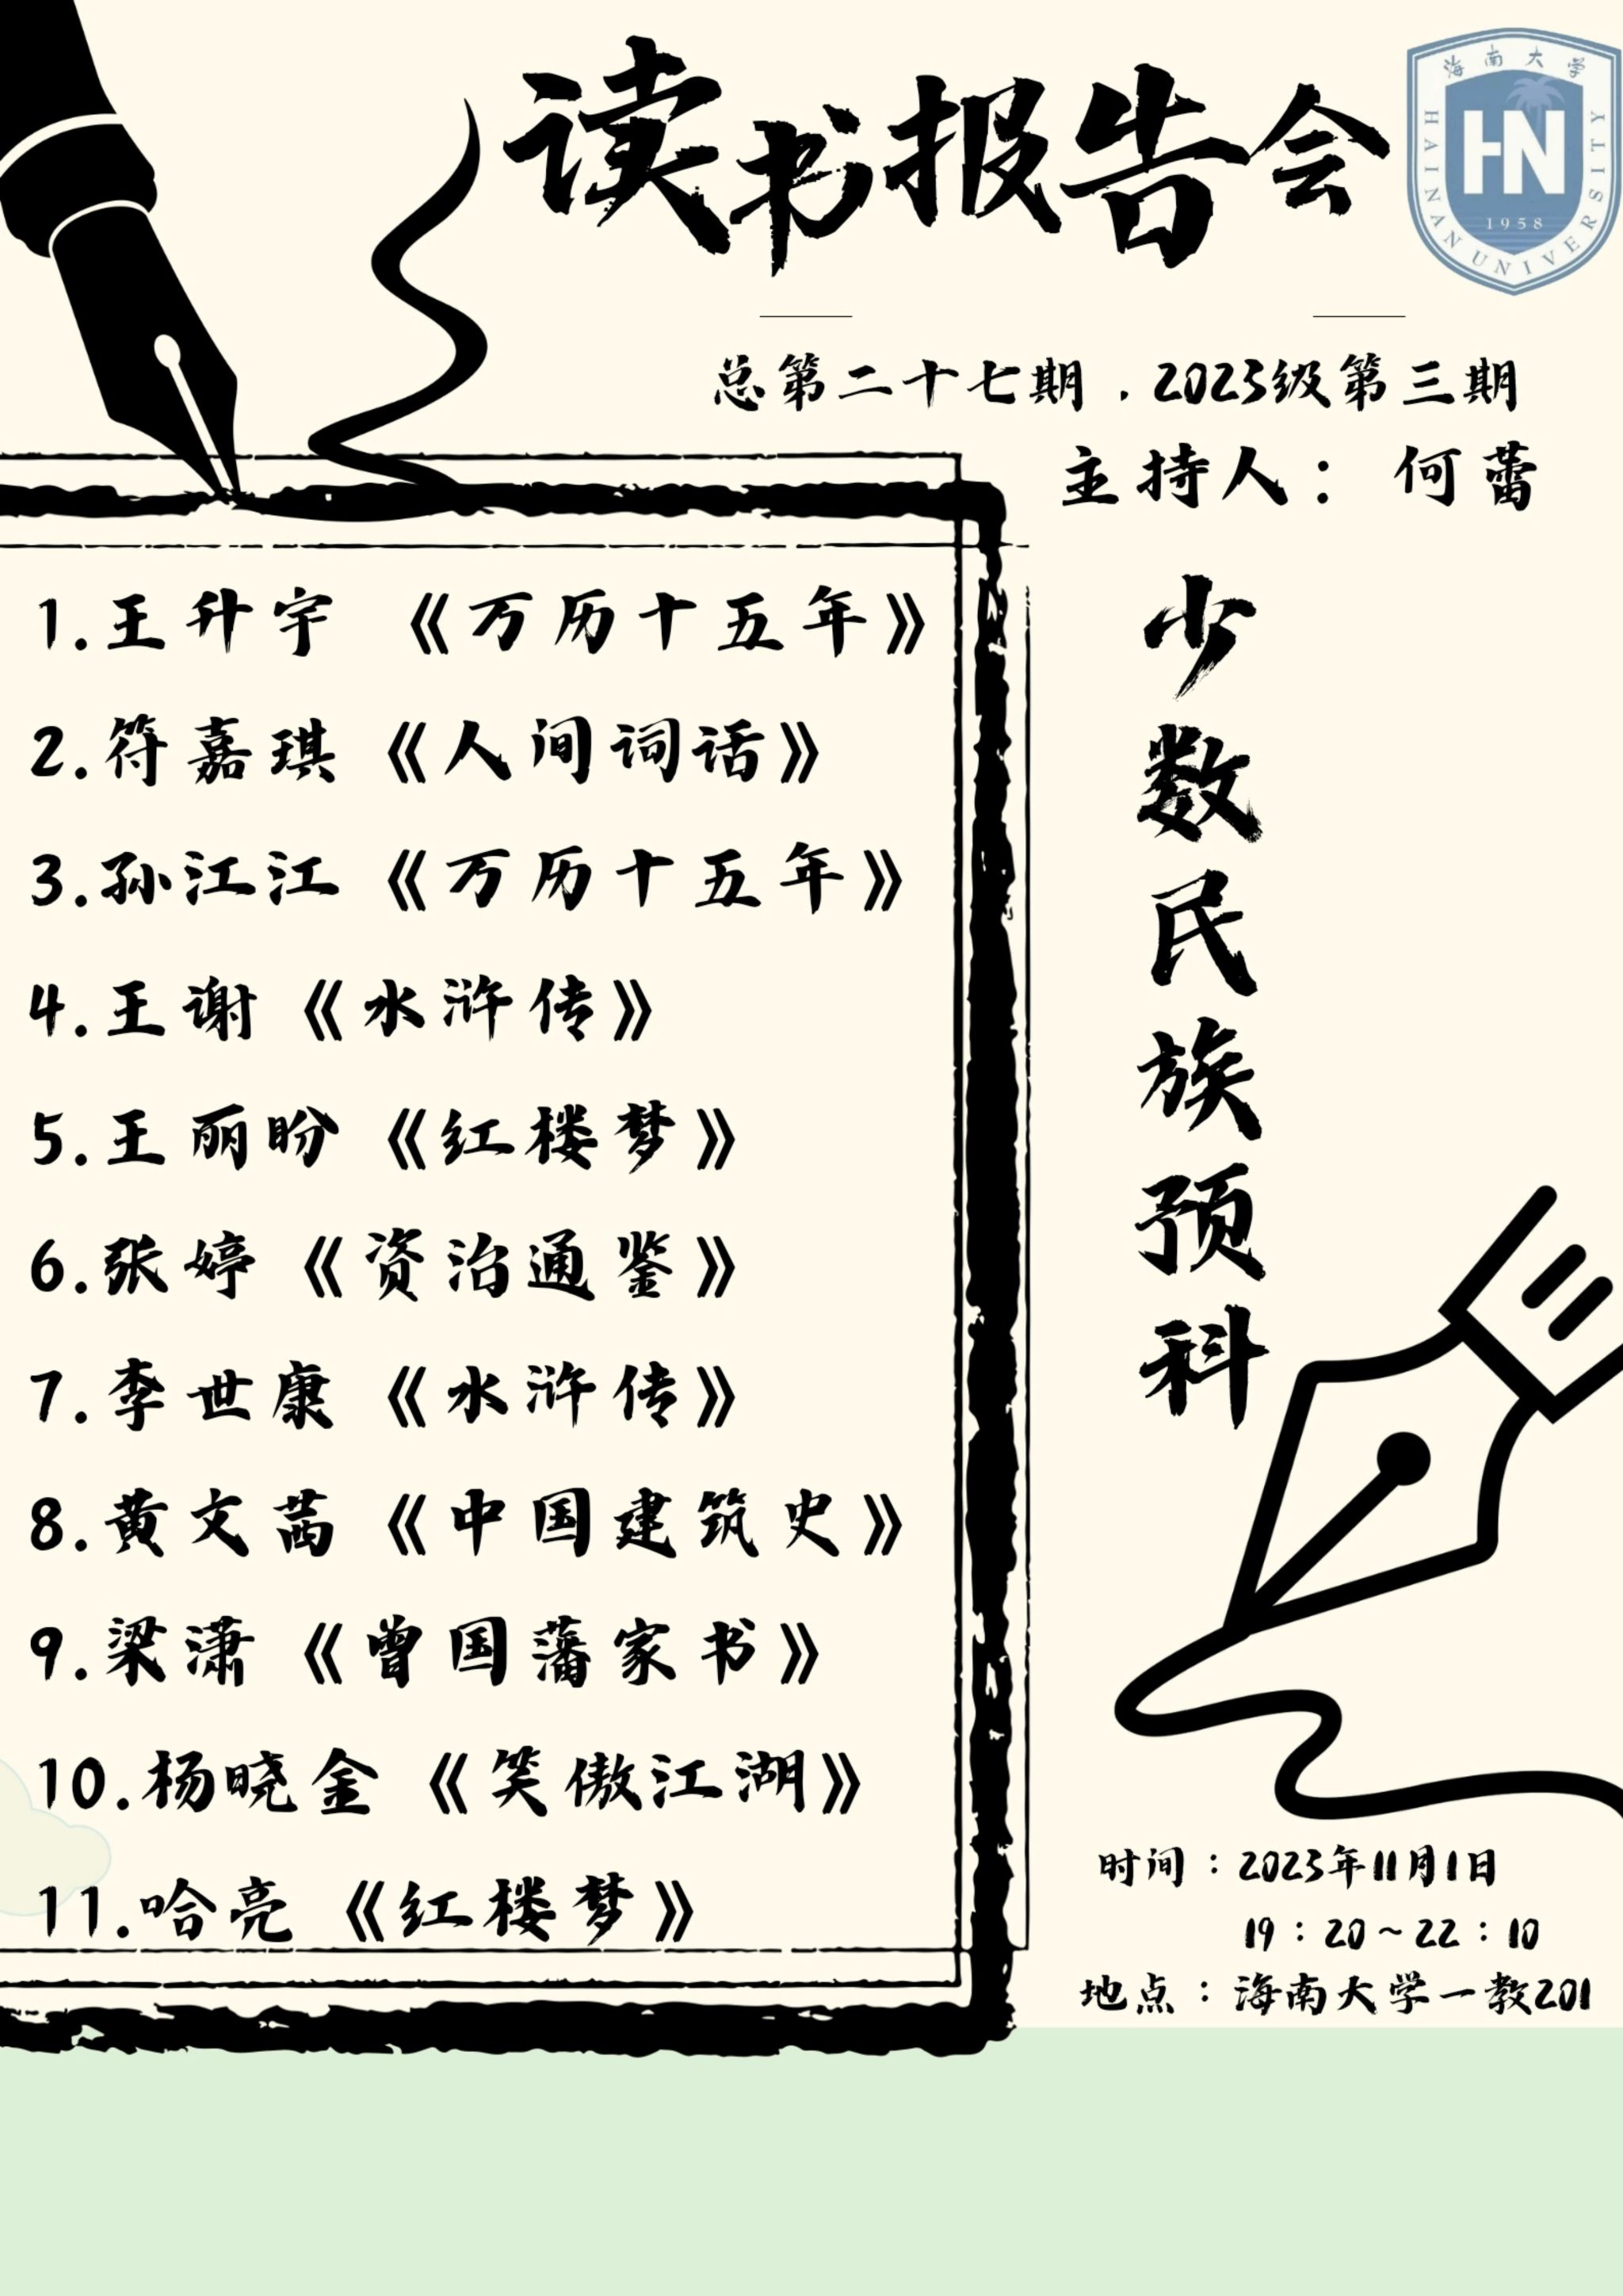 读书报告会
海南大学
HAINAN UNIVERSITY
HN
1958
总第二十七期.2023级第三期
主持人：何蕾
1.王升宇《万历十五年》
2.符嘉琪《人间词话》
3.孙江江《万历十五年》
4.王谢《水浒传》
5.王丽盼《红楼梦》
6.张婷《资治通鉴》
7.李世康《水浒传》
8.黄文茜《中国建筑史》
9.梁潇《曾国藩家书》
10.杨晓金《笑傲江湖》
11.哈亮《红楼梦》
少数民族预科
时间：2023年11月1日
19：20~22：10
地点：海南大学一教201